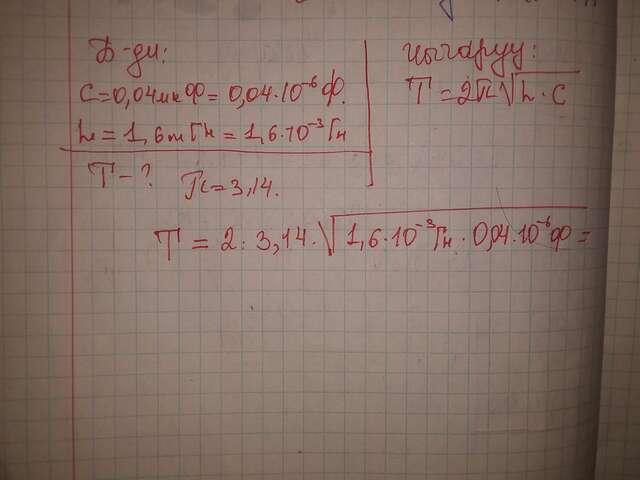 Б-ди:
C=0,04мкФ=0,04·10⁻⁶Ф.
L=1,6мГн=1,6·10⁻³Гн
T-?
π=3,14.
Чыгаруу:
T=2π√L·C
T=2·3,14·√1,6·10⁻³Гн·0,04·10⁻⁶Ф=